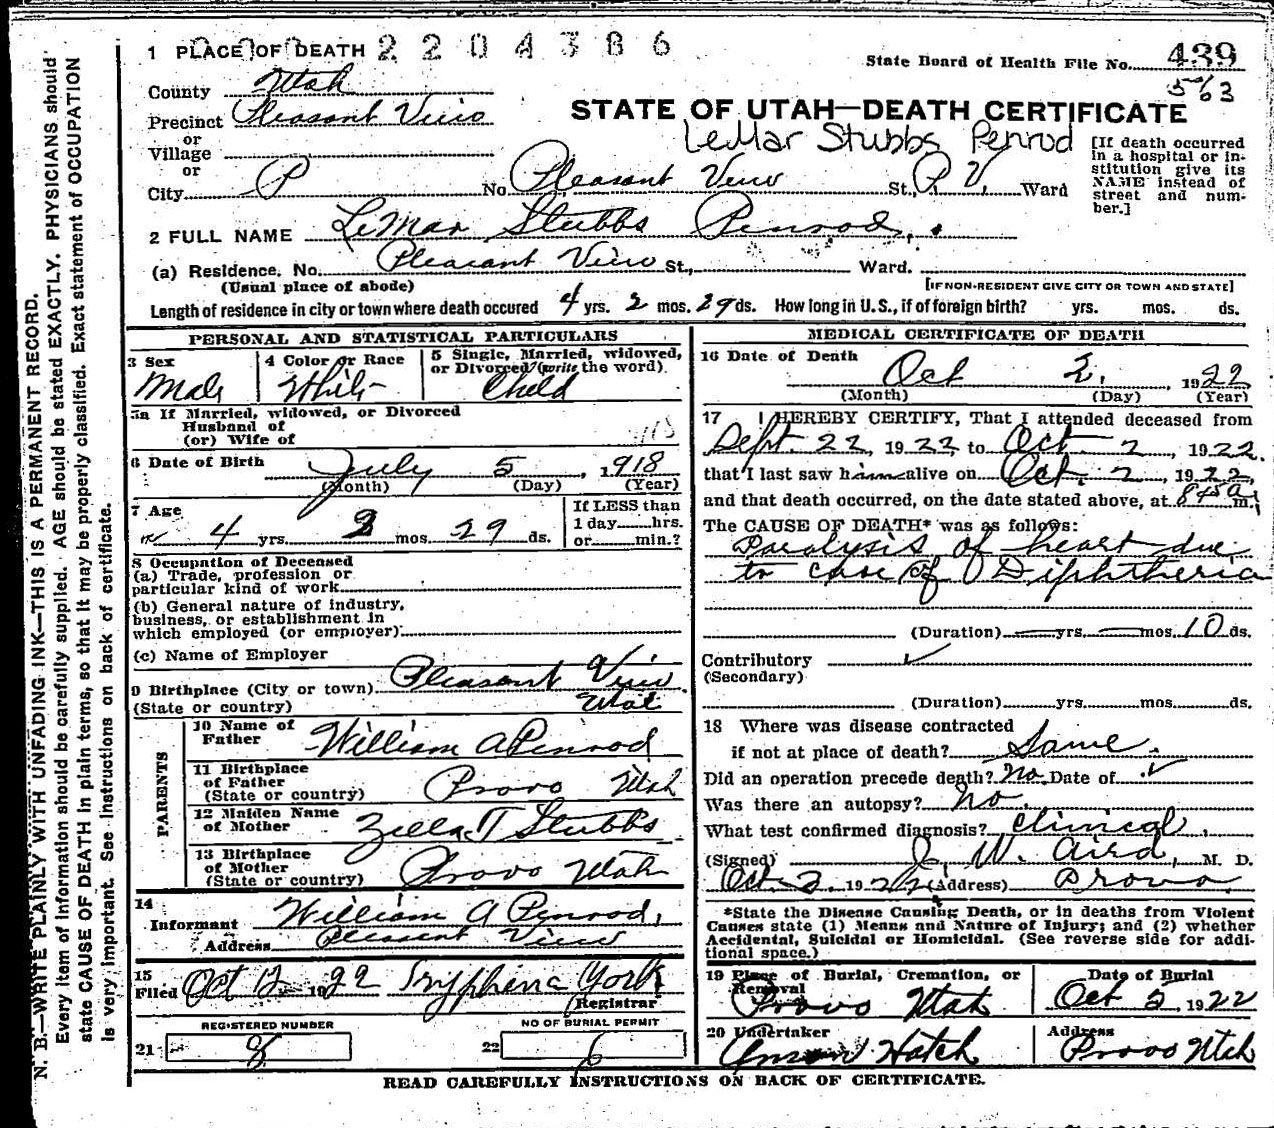 1 PLACE OF DEATH 2204386
State Board of Health File No. 439
5-63
County Utah
Precinct Pleasant View
or
Village
or
City P No. Pleasant View St., P. V. Ward
STATE OF UTAH—DEATH CERTIFICATE
LeMar Stubbs Penrod
[If death occurred
in a hospital or in-
stitution give its
NAME instead of
street and num-
ber.]
2 FULL NAME LeMar Stubbs Penrod.
(a) Residence. No. Pleasant View St., Ward.
(Usual place of abode)
[IF NON-RESIDENT GIVE CITY OR TOWN AND STATE]
Length of residence in city or town where death occured 4 yrs. 2 mos. 29 ds. How long in U.S., if of foreign birth? yrs. mos. ds.
PERSONAL AND STATISTICAL PARTICULARS
3 Sex
Male
4 Color or Race
White
5 Single, Married, widowed,
or Divorced (write the word)
Child
5a If Married, widowed, or Divorced
Husband of
(or) Wife of
6 Date of Birth July 5, 1918
(Month) (Day) (Year)
7 Age
4 yrs. 2 mos. 29 ds.
If LESS than
1 day hrs.
or min.?
8 Occupation of Deceased
(a) Trade, profession or
particular kind of work
(b) General nature of industry,
business, or establishment in
which employed (or employer)
(c) Name of Employer
9 Birthplace (City or town) Pleasant View
(State or country) Utah
PARENTS
10 Name of
Father William A Penrod
11 Birthplace
of Father
(State or country) Provo Utah
12 Maiden Name
of Mother Zella T Stubbs
13 Birthplace
of Mother
(State or country) Provo Utah
14
Informant William A Penrod,
Address Pleasant View
15
Filed Oct 12 1922 Tryphena York
Registrar
REGISTERED NUMBER
21- 8
NO OF BURIAL PERMIT
22 6
MEDICAL CERTIFICATE OF DEATH
16 Date of Death
Oct 2, 1922
(Month) (Day) (Year)
17 I HEREBY CERTIFY, That I attended deceased from
Sept. 22, 1922 to Oct. 2, 1922.
that I last saw him alive on Oct. 2, 1922,
and that death occurred, on the date stated above, at 845a m.
The CAUSE OF DEATH* was as follows:
Paralysis of heart due
to case of Diphtheria
(Duration) — yrs. — mos. 10 ds.
Contributory
(Secondary)
(Duration) yrs. mos. ds.
18 Where was disease contracted
if not at place of death? Same.
Did an operation precede death? No. Date of
Was there an autopsy? No.
What test confirmed diagnosis? Clinical.
(Signed) J. W. Aird, M. D.
Oct. 2, 1922 (Address) Provo
*State the Disease Causing Death, or in deaths from Violent
Causes state (1) Means and Nature of Injury; and (2) whether
Accidental, Suicidal or Homicidal. (See reverse side for addi-
tional space.)
19 Place of Burial, Cremation, or
Removal
Provo Utah
Date of Burial
Oct 5, 1922
20 Undertaker
Anson Hatch
Address
Provo Utah
READ CAREFULLY INSTRUCTIONS ON BACK OF CERTIFICATE.
N. B.—WRITE PLAINLY WITH UNFADING INK—THIS IS A PERMANENT RECORD.
Every item of information should be carefully supplied. AGE should be stated EXACTLY. PHYSICIANS should
state CAUSE OF DEATH in plain terms, so that it may be properly classified. Exact statement of OCCUPATION
is very important. See instructions on back of certificate.